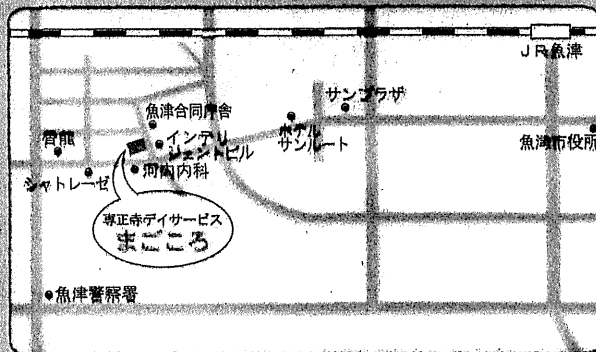 JR魚津
サンプラザ
魚津合同庁舎
ホテル
サンルート
魚津市役所
インテリ
ジェントビル
河内内科
シャトレーゼ
専正寺デイサービス
まごころ
魚津警察署